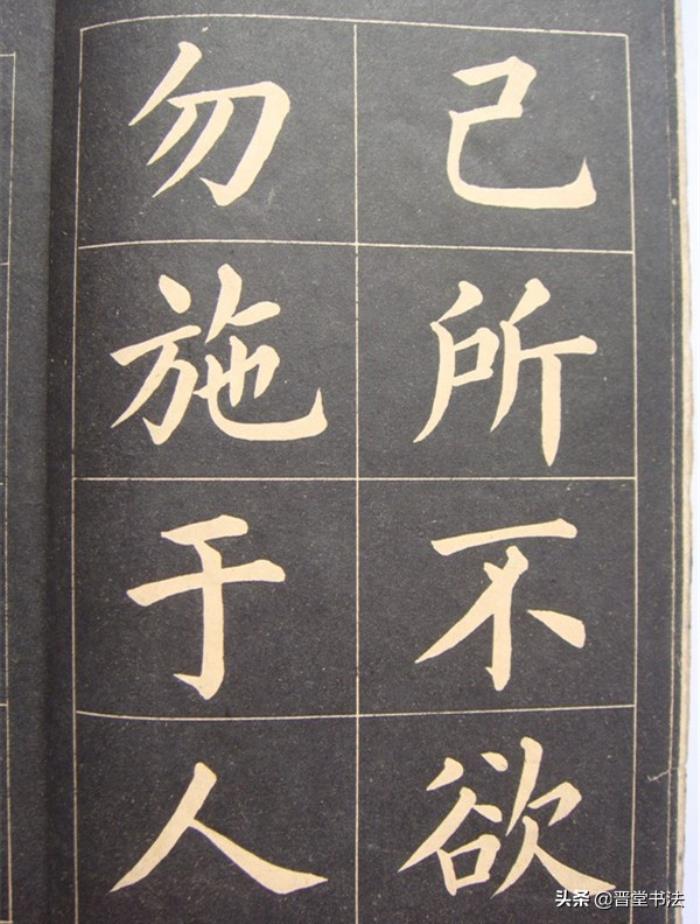 己所不欲
勿施于人
头条@晋堂书法